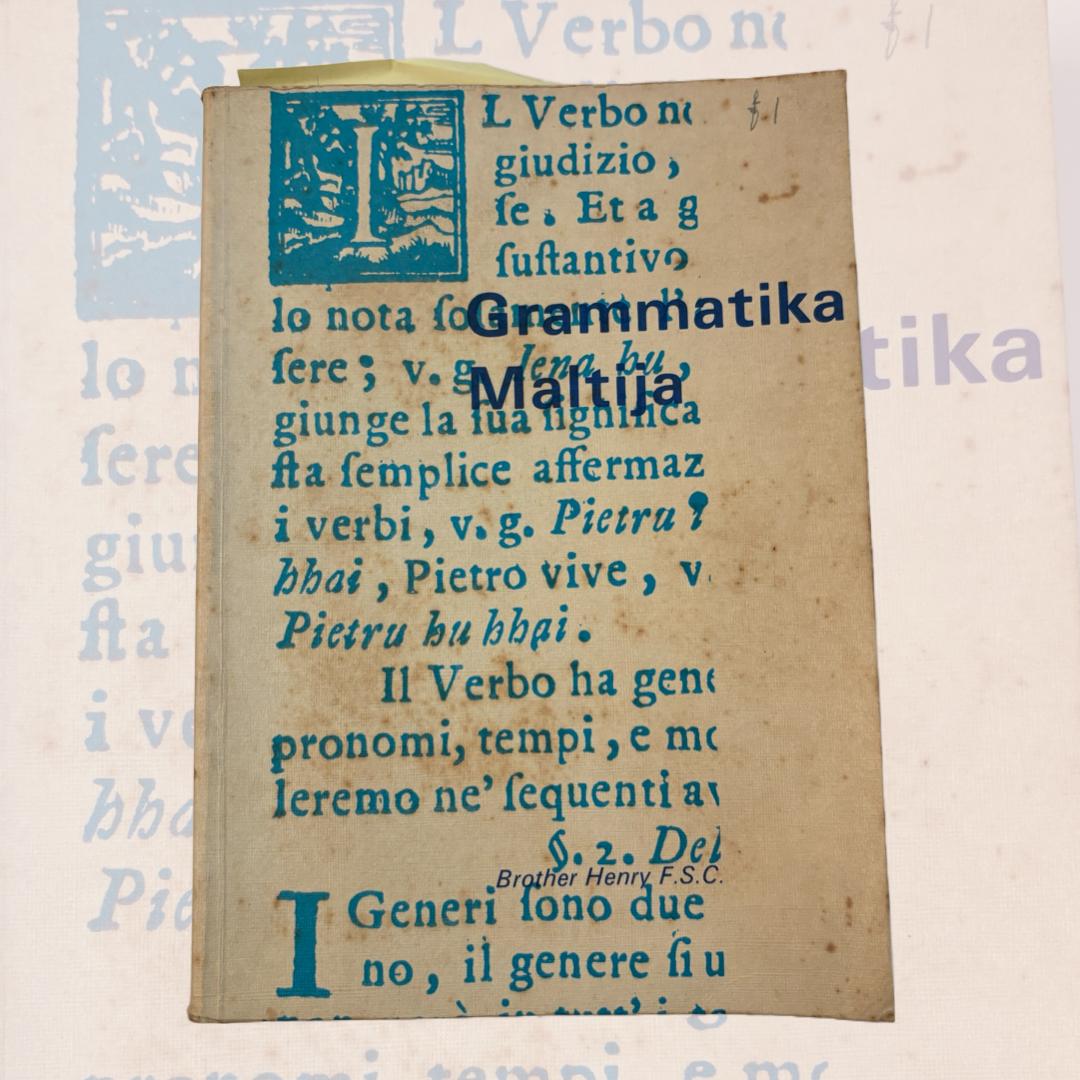 IL Verbo
giudizio,
ſe. Et a g
ſuſtantivo
Grammatika
lo nota
ſere; v. g. Jena hu,
Maltija
giunge la ſua ſignifica
ſta ſemplice affermaz
i verbi, v. g. Pietru
hhai, Pietro vive, v.
Pietru hu hhai.
Il Verbo ha gene
pronomi, tempi, e mo
leremo ne' ſequenti av
§. 2. Del
Brother Henry F.S.C.
I Generi ſono due
no, il genere ſi u
£1